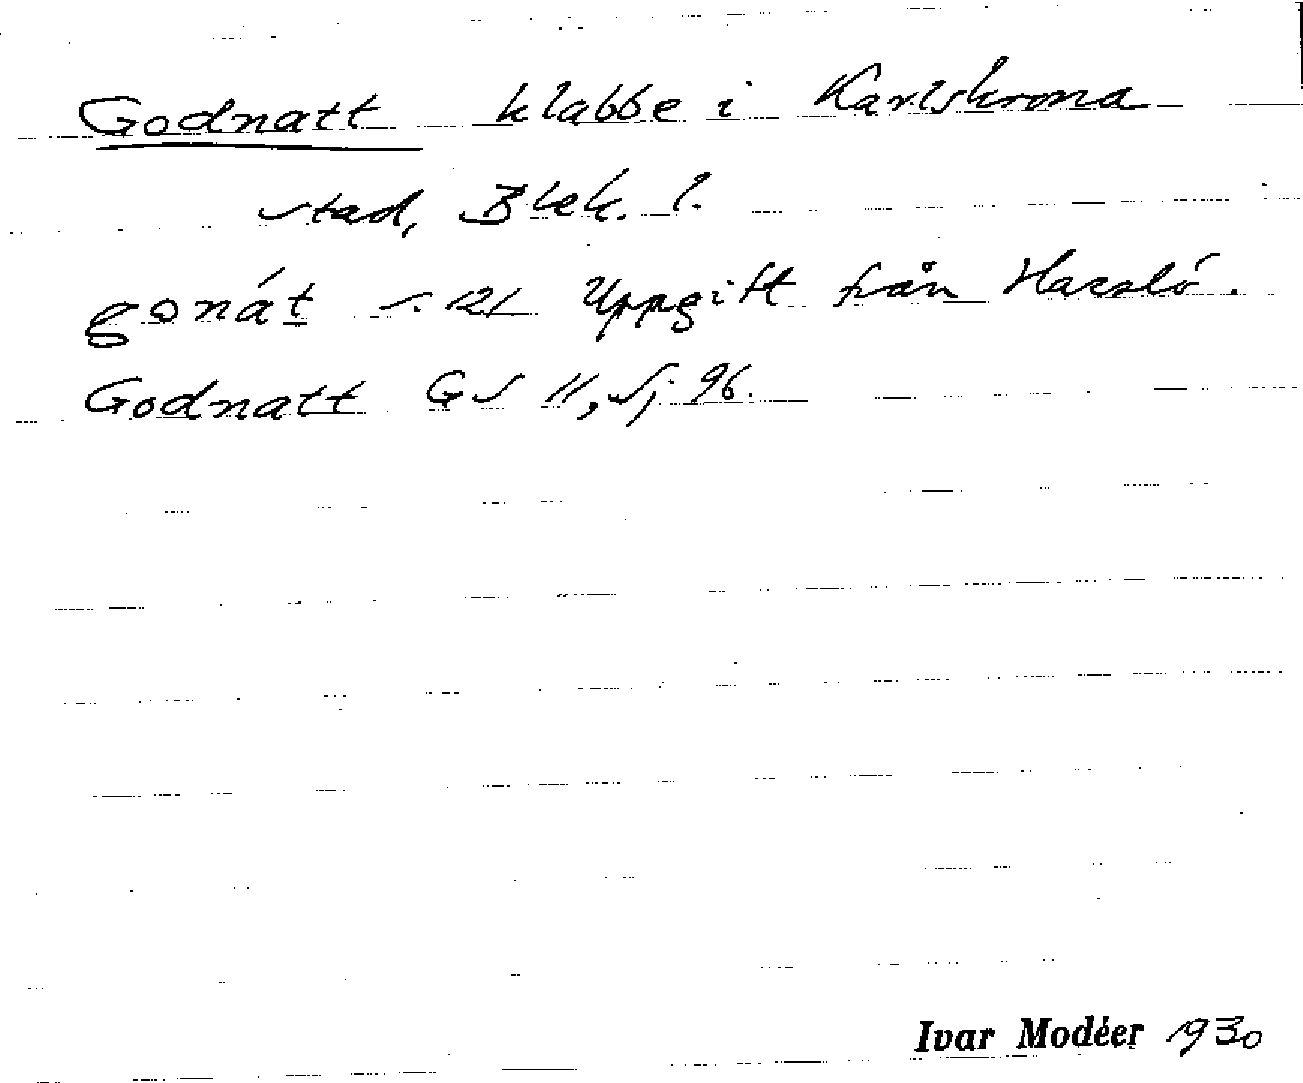 Godnatt klabbe i Karlskrona
stad, Blek. l.
gonát s. 121 Uppgift från Hasslö.
Godnatt GS 11, Sj 96.
Ivar Modéer 1930